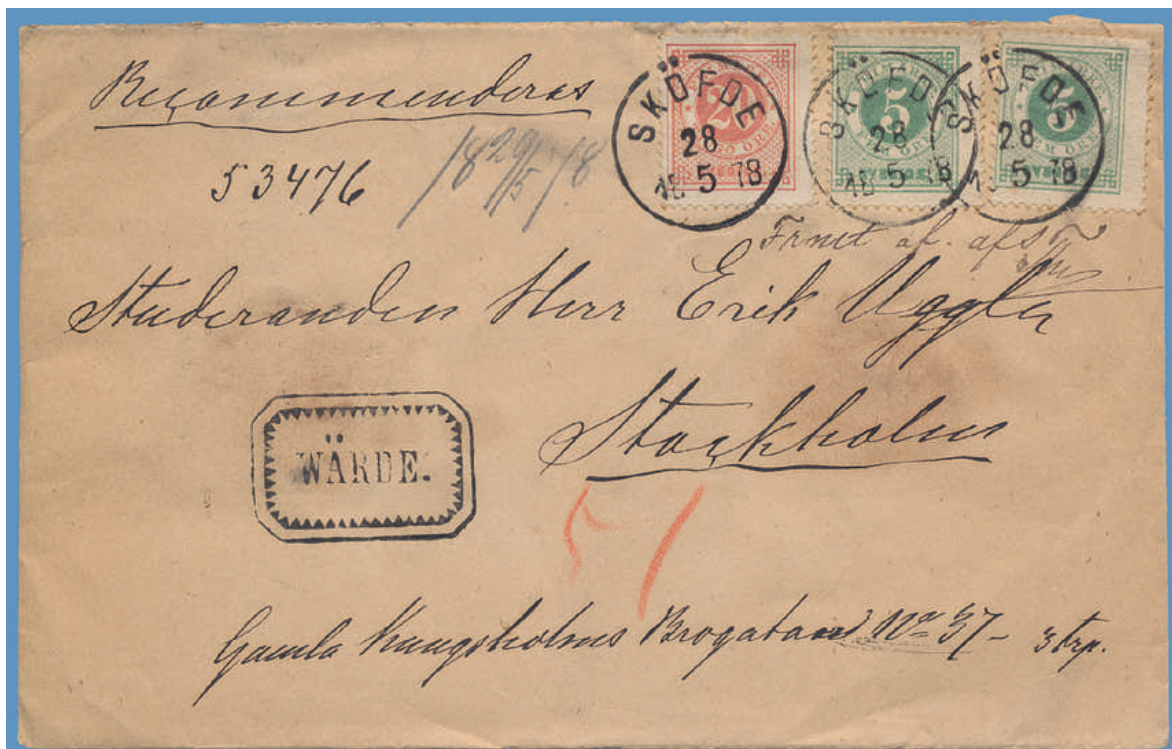 Recommenderas
53476
18 29/5 78
SKÖFDE
28
18 5 78
20
SKÖFDE
28
18 5 78
5
FEM ÖRE
SKÖFDE
28
18 5 78
5
FEM ÖRE
Frmt af. afs
Studeranden Herr Erik Uggla
Stockholm
WÄRDE.
51
Gamla Kungsholms Brogatan No 37 – 3 trp.